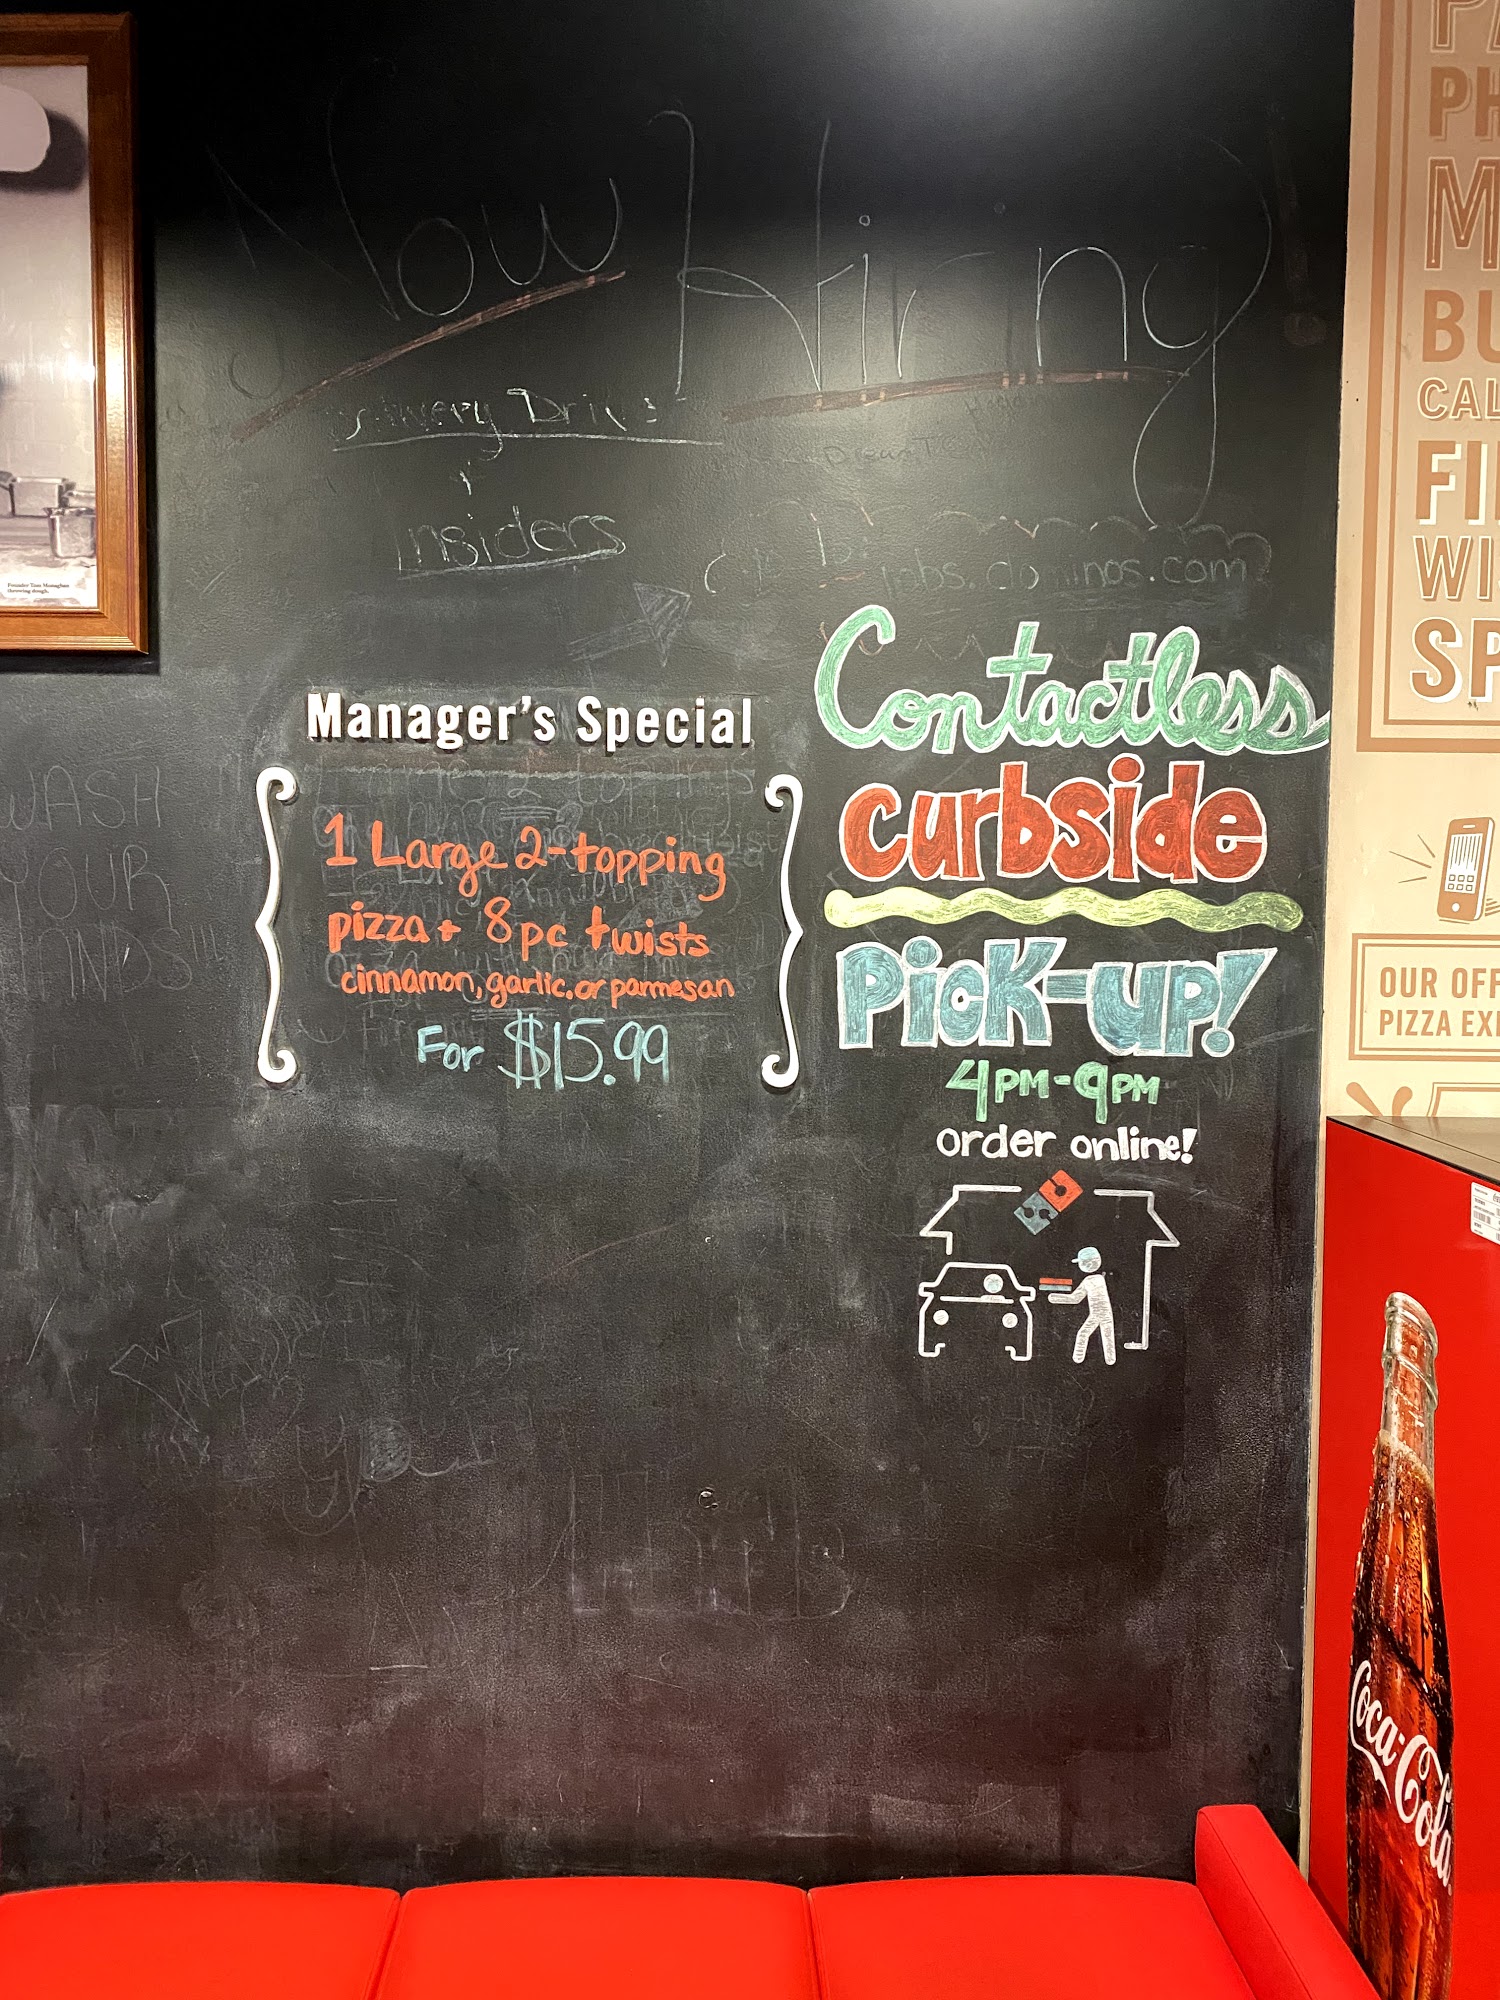 Now Hiring
Delivery Drivers
+
insiders
jobs.dominos.com
Founder Tom Monaghan
throwing dough.
WASH
YOUR
HANDS!!!
Manager's Special
1 Large 2-topping
pizza + 8pc twists
cinnamon, garlic, or parmesan
For $15.99
Contactless
Curbside
Pick-up!
4PM-9PM
order online!
PH
M
BU
CAL
FI
WI
SP
OUR OFF
PIZZA EX
Coca-Cola